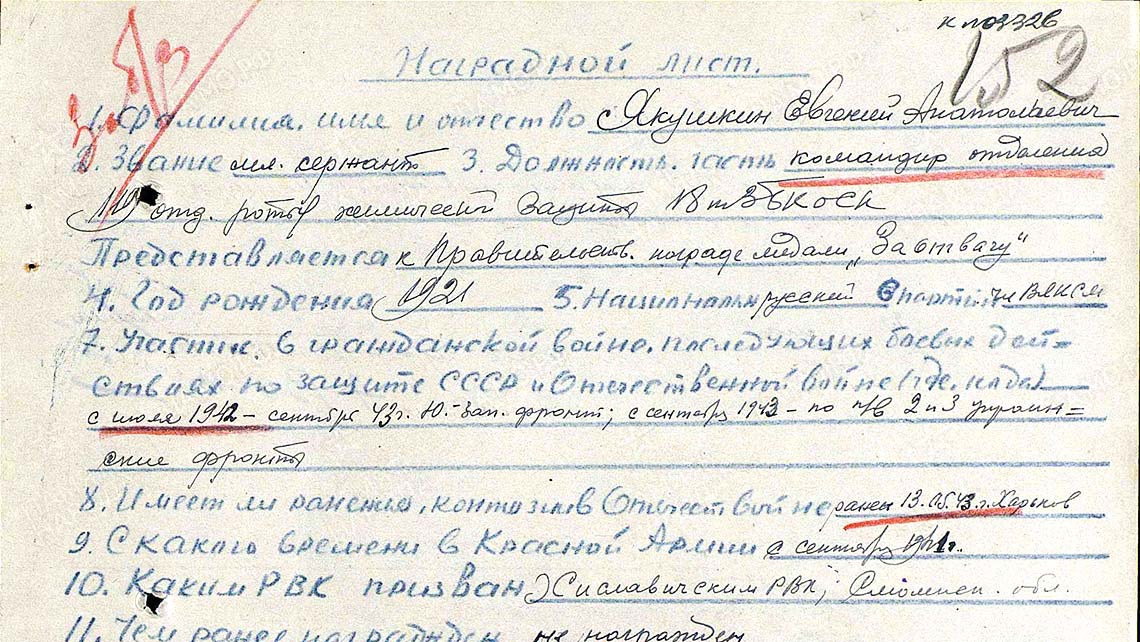 к п0332в
152
Наградной лист.
1. Фамилия, имя и отчество Якушкин Евгений Анатолаевич
2. Звание мл. сержант 3. Должность, часть командир отделения
119 отд. роты химической защиты 18 т
Представляется к Правительств. награде медали „За отвагу"
4. Год рождения 1921 5. Национальн русский 6 партийн чл ВЛКСМ
7. Участник в гражданской войне, последующих боевых дей=
ствиях по защите СССР и Отечественной войне (где, когда)
с июля 1942 – сентябрь 43 г. Ю.-Зап. фронт; с сентября 1943 – по н/в 2 и 3 украин=
ские фронты
8. Имеет ли ранения, контузии в Отечествой войне ранен 13.05.43 г. Харьков
9. С какого времени в Красной Армии с сентября 1941г.
10. Каким РВК призван Хиславическим РВК, Смоленск. обл.
11. Чем ранее награжден не награжден